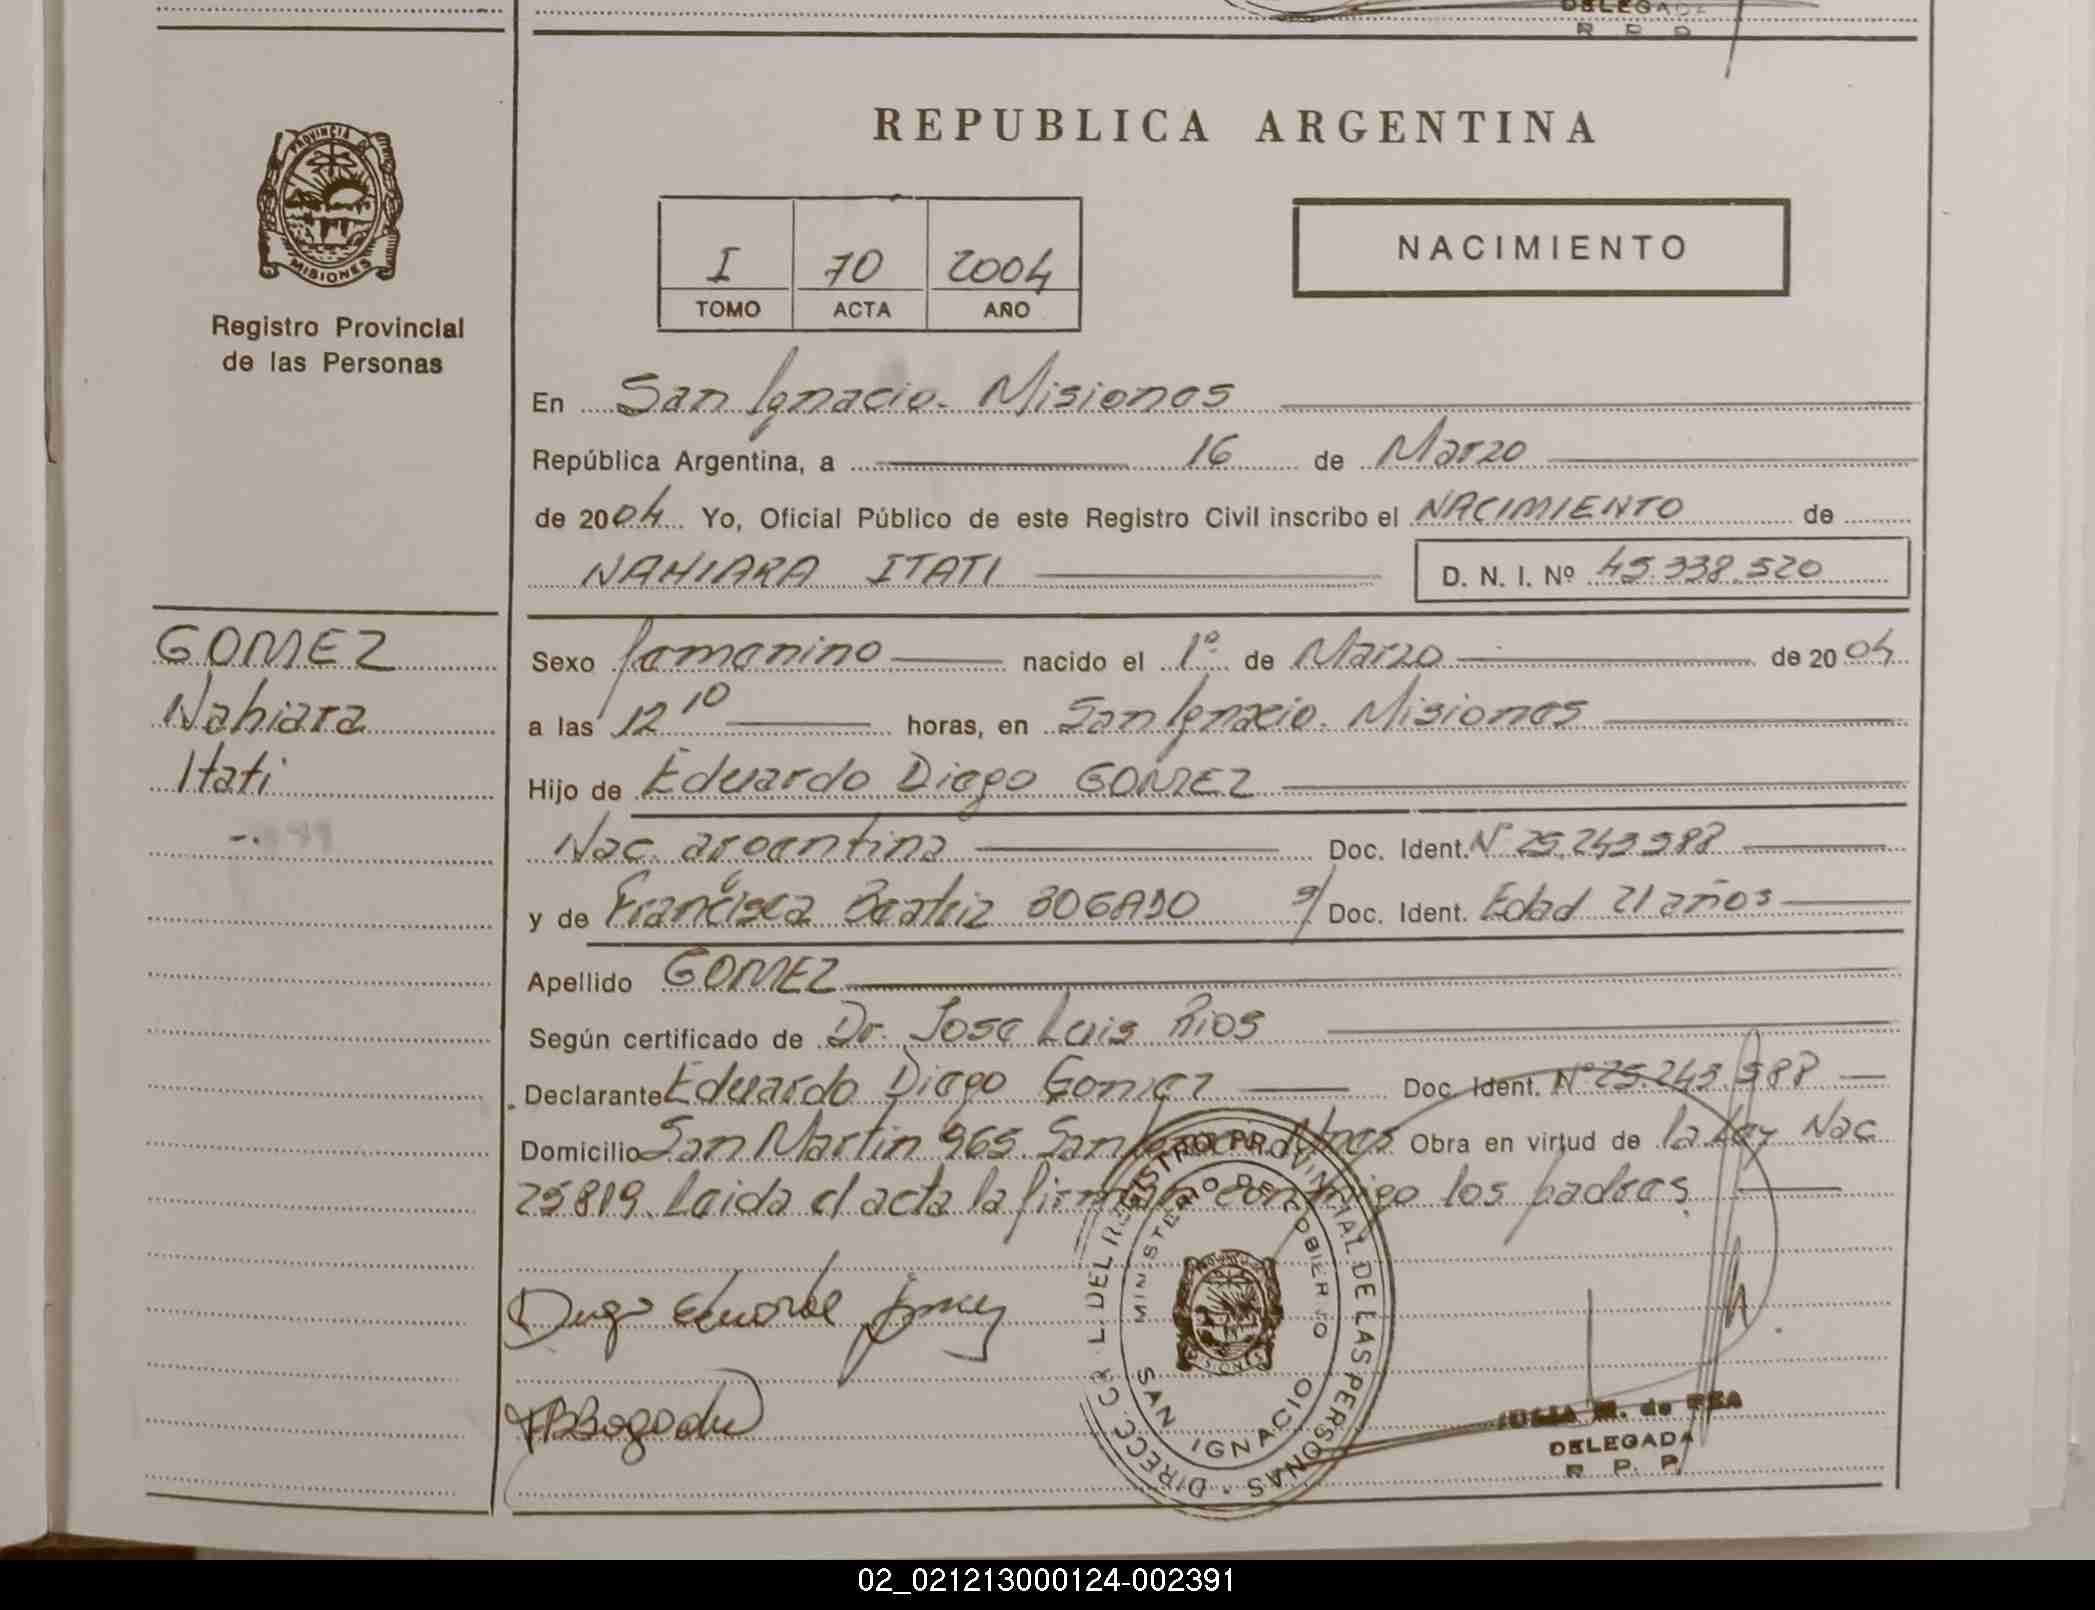 DELEGADA
R P P
PROVINCIA
MISIONES
Registro Provincial
de las Personas
REPUBLICA ARGENTINA
I 70 2004
TOMO ACTA AÑO
NACIMIENTO
En San Ignacio. Misiones
República Argentina, a 16 de Marzo
de 2004 Yo, Oficial Público de este Registro Civil inscribo el NACIMIENTO de
NAHIARA ITATI D. N. I. Nº 45.338.520
GOMEZ
Nahiara
Itati
Sexo femenino nacido el 1º de Marzo de 2004
a las 12 10 horas, en San Ignacio. Misiones
Hijo de Eduardo Diego GOMEZ
Nac. argentina Doc. Ident. Nº 25.243.988
y de Francisca Beatriz BOGADO s/ Doc. Ident. Edad 21 años
Apellido GOMEZ
Según certificado de Dr. Jose Luis Rios
Declarante Eduardo Diego Gomez Doc. Ident. Nº 25.243.988
Domicilio San Martin 965. San Ignacio Mnes Obra en virtud de la Ley Nac
25819. Leida el acta la firman conmigo los padres.
Diego Eduardo Gomez
FBBogado
DIRECC. GRAL. DEL REGISTRO PROVINCIAL DE LAS PERSONAS
MINISTERIO DE GOBIERNO
MISIONES
SAN IGNACIO
JULIA M. de REA
DELEGADA
R P. P.
02_021213000124-002391